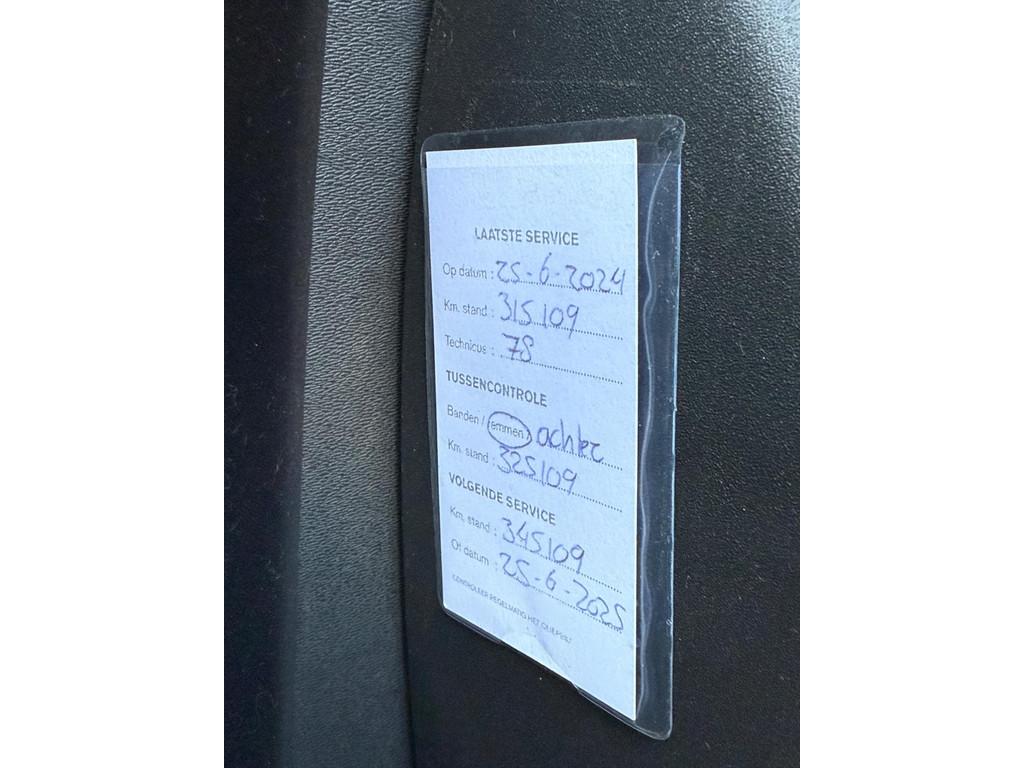 LAATSTE SERVICE
Op datum : 25-6-2024
Km. stand : 315109
Technicus : 78
TUSSENCONTROLE
Banden / remmen achter
Km. stand : 325109
VOLGENDE SERVICE
Km. stand : 345109
Of datum : 25-6-2025
CONTROLEER REGELMATIG HET OLIEPEIL